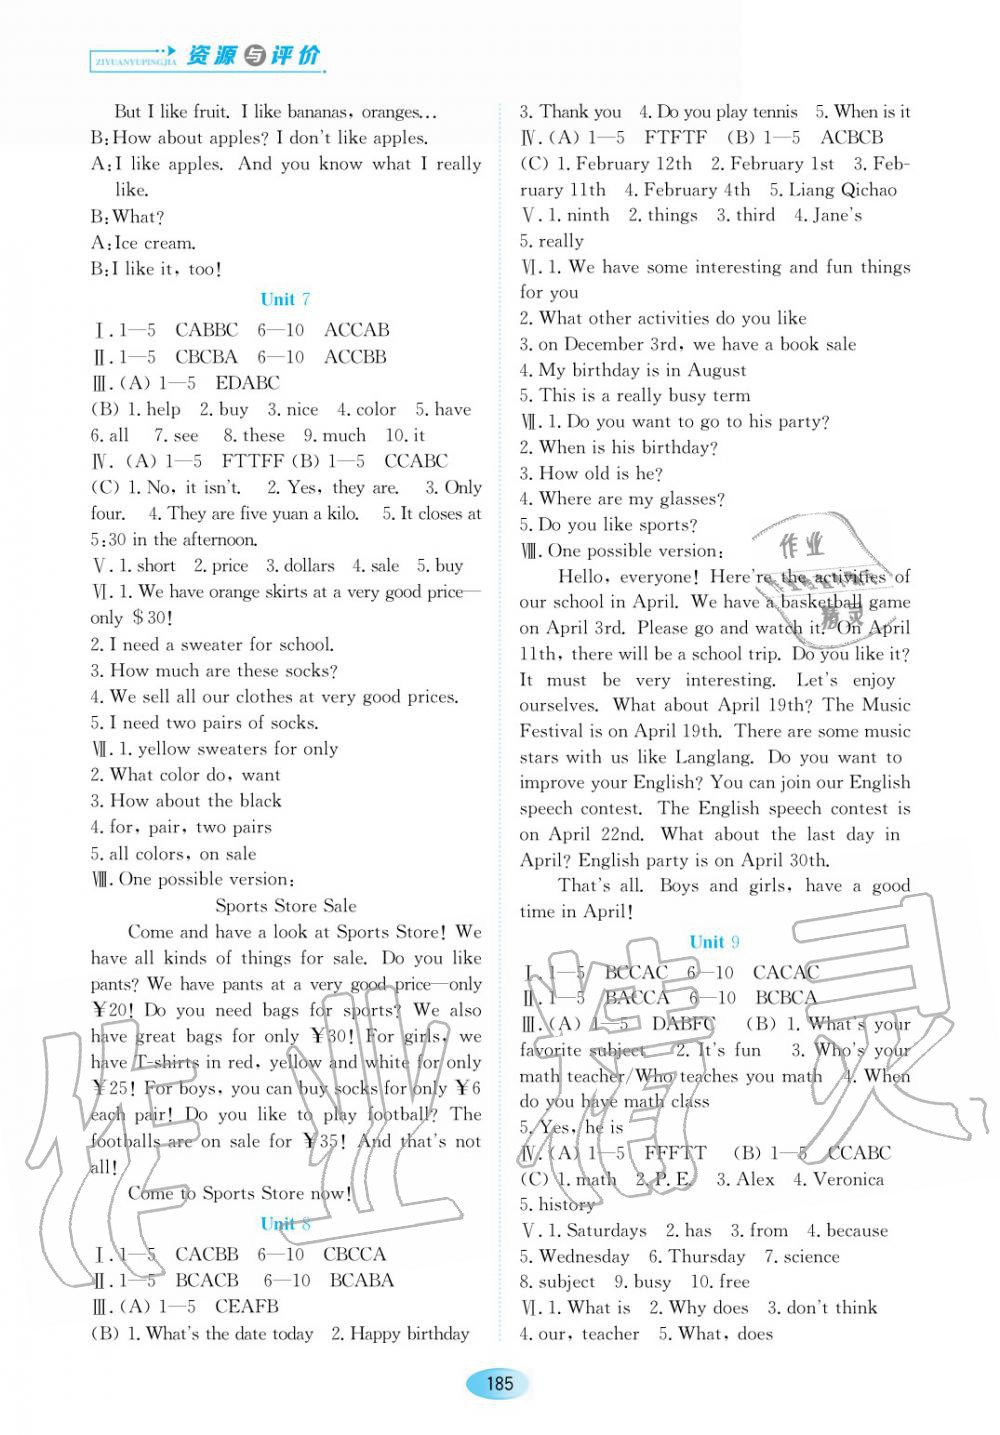 ZIYUANYUPINGJIA 资源与评价
But I like fruit. I like bananas, oranges...
B:How about apples? I don't like apples.
A:I like apples. And you know what I really
like.
B:What?
A:Ice cream.
B:I like it, too!
Unit 7
Ⅰ.1—5 CABBC 6—10 ACCAB
Ⅱ.1—5 CBCBA 6—10 ACCBB
Ⅲ.(A) 1—5 EDABC
(B) 1. help 2. buy 3. nice 4. color 5. have
6. all 7. see 8. these 9. much 10. it
Ⅳ. (A) 1—5 FTTFF (B) 1—5 CCABC
(C) 1. No, it isn't. 2. Yes, they are. 3. Only
four. 4. They are five yuan a kilo. 5. It closes at
5:30 in the afternoon.
Ⅴ.1. short 2. price 3. dollars 4. sale 5. buy
Ⅵ.1. We have orange skirts at a very good price—
only $30!
2. I need a sweater for school.
3. How much are these socks?
4. We sell all our clothes at very good prices.
5. I need two pairs of socks.
Ⅶ.1. yellow sweaters for only
2. What color do, want
3. How about the black
4. for, pair, two pairs
5. all colors, on sale
Ⅷ. One possible version:
Sports Store Sale
Come and have a look at Sports Store! We
have all kinds of things for sale. Do you like
pants? We have pants at a very good price—only
¥20! Do you need bags for sports? We also
have great bags for only ¥30! For girls, we
have T-shirts in red, yellow and white for only
¥25! For boys, you can buy socks for only ¥6
each pair! Do you like to play football? The
footballs are on sale for ¥35! And that's not
all!
Come to Sports Store now!
Unit 8
Ⅰ.1—5 CACBB 6—10 CBCCA
Ⅱ.1—5 BCACB 6—10 BCABA
Ⅲ.(A) 1—5 CEAFB
(B) 1. What's the date today 2. Happy birthday
3. Thank you 4. Do you play tennis 5. When is it
Ⅳ. (A) 1—5 FTFTF (B) 1—5 ACBCB
(C) 1. February 12th 2. February 1st 3. Feb-
ruary 11th 4. February 4th 5. Liang Qichao
Ⅴ.1. ninth 2. things 3. third 4. Jane's
5. really
Ⅵ.1. We have some interesting and fun things
for you
2. What other activities do you like
3. on December 3rd, we have a book sale
4. My birthday is in August
5. This is a really busy term
Ⅶ.1. Do you want to go to his party?
2. When is his birthday?
3. How old is he?
4. Where are my glasses?
5. Do you like sports?
Ⅷ. One possible version:
Hello, everyone! Here're the activities of
our school in April. We have a basketball game
on April 3rd. Please go and watch it. On April
11th, there will be a school trip. Do you like it?
It must be very interesting. Let's enjoy
ourselves. What about April 19th? The Music
Festival is on April 19th. There are some music
stars with us like Langlang. Do you want to
improve your English? You can join our English
speech contest. The English speech contest is
on April 22nd. What about the last day in
April? English party is on April 30th.
That's all. Boys and girls, have a good
time in April!
Unit 9
Ⅰ.1—5 BCCAC 6—10 CACAC
Ⅱ.1—5 BACCA 6—10 BCBCA
Ⅲ.(A) 1—5 DABFC (B) 1. What's your
favorite subject 2. It's fun 3. Who's your
math teacher/Who teaches you math 4. When
do you have math class
5. Yes, he is
Ⅳ.(A) 1—5 FFFTT (B) 1—5 CCABC
(C) 1. math 2. P. E. 3. Alex 4. Veronica
5. history
Ⅴ.1. Saturdays 2. has 3. from 4. because
5. Wednesday 6. Thursday 7. science
8. subject 9. busy 10. free
Ⅵ.1. What is 2. Why does 3. don't think
4. our, teacher 5. What, does
185
作业精灵
作业
精灵